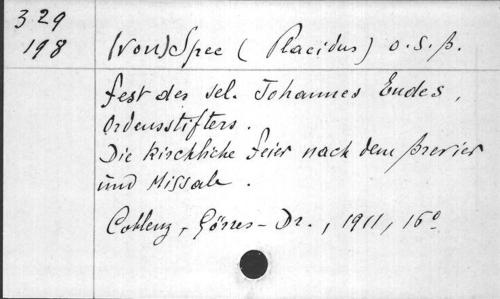 329
198
(von) Spee (Placidus) o.S.B.
Fest des sel. Johannes Eudes,
Ordensstifters.
Die kirchliche Feier nach dem Brevier
und Missale.
Coblenz, Görres-Dr., 1911, 16°